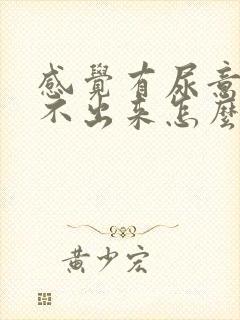 感覺有尿意
不出來怎麼
黃少宏